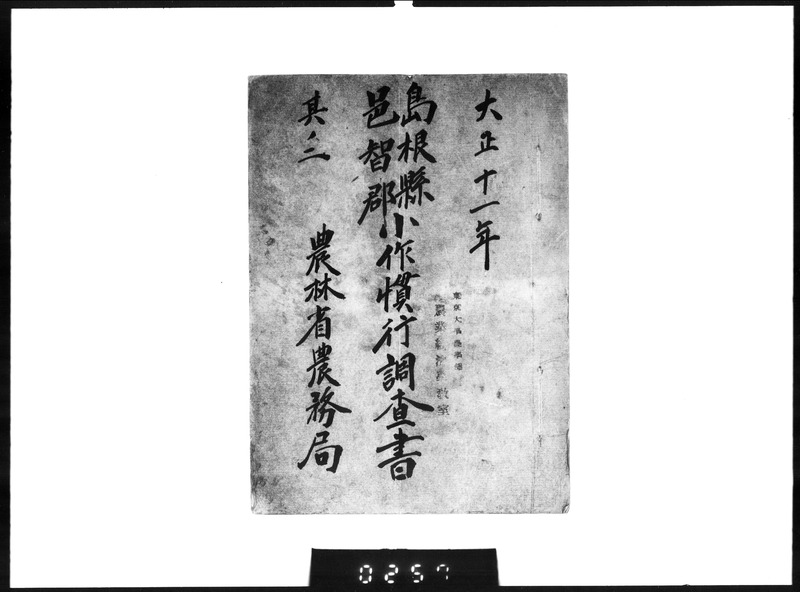 大正十一年
島根縣
邑智郡
小作慣行調査書
其ノ二
農林省農務局
農業經濟學教室
0257